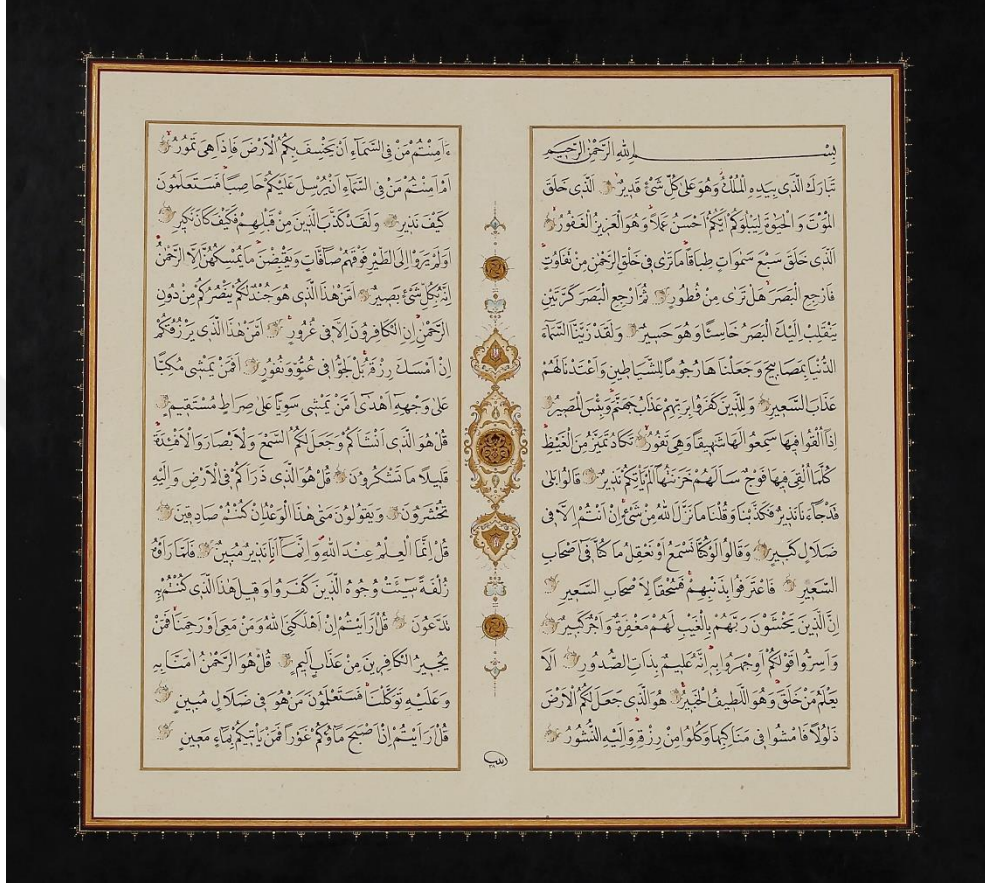 بِسْمِ اللهِ الرَّحْمٰنِ الرَّحِيمِ
تَبَارَكَ الَّذِى بِيَدِهِ الْمُلْكُ وَهُوَ عَلٰى كُلِّ شَىْءٍ قَدِيرٌ الَّذِى خَلَقَ
الْمَوْتَ وَالْحَيٰوةَ لِيَبْلُوَكُمْ اَيُّكُمْ اَحْسَنُ عَمَلًا وَهُوَ الْعَزِيزُ الْغَفُورُ
الَّذِى خَلَقَ سَبْعَ سَمٰوَاتٍ طِبَاقًا مَا تَرٰى فِى خَلْقِ الرَّحْمٰنِ مِنْ تَفَاوُتٍ
فَارْجِعِ الْبَصَرَ هَلْ تَرٰى مِنْ فُطُورٍ ثُمَّ ارْجِعِ الْبَصَرَ كَرَّتَيْنِ
يَنْقَلِبْ اِلَيْكَ الْبَصَرُ خَاسِئًا وَهُوَ حَسِيرٌ وَلَقَدْ زَيَّنَّا السَّمَاءَ
الدُّنْيَا بِمَصَابِيحَ وَجَعَلْنَاهَا رُجُومًا لِلشَّيَاطِينِ وَاَعْتَدْنَا لَهُمْ
عَذَابَ السَّعِيرِ وَلِلَّذِينَ كَفَرُوا بِرَبِّهِمْ عَذَابُ جَهَنَّمَ وَبِئْسَ الْمَصِيرُ
اِذَا اُلْقُوا فِيهَا سَمِعُوا لَهَا شَهِيقًا وَهِىَ تَفُورُ تَكَادُ تَمَيَّزُ مِنَ الْغَيْظِ
كُلَّمَا اُلْقِىَ فِيهَا فَوْجٌ سَاَلَهُمْ خَزَنَتُهَا اَلَمْ يَاْتِكُمْ نَذِيرٌ قَالُوا بَلٰى
قَدْ جَاءَنَا نَذِيرٌ فَكَذَّبْنَا وَقُلْنَا مَا نَزَّلَ اللهُ مِنْ شَىْءٍ اِنْ اَنْتُمْ اِلَّا فِى
ضَلَالٍ كَبِيرٍ وَقَالُوا لَوْ كُنَّا نَسْمَعُ اَوْ نَعْقِلُ مَا كُنَّا فِى اَصْحَابِ
السَّعِيرِ فَاعْتَرَفُوا بِذَنْبِهِمْ فَسُحْقًا لِاَصْحَابِ السَّعِيرِ
اِنَّ الَّذِينَ يَخْشَوْنَ رَبَّهُمْ بِالْغَيْبِ لَهُمْ مَغْفِرَةٌ وَاَجْرٌ كَبِيرٌ
وَاَسِرُّوا قَوْلَكُمْ اَوِ اجْهَرُوا بِهِ اِنَّهُ عَلِيمٌ بِذَاتِ الصُّدُورِ اَلَا
يَعْلَمُ مَنْ خَلَقَ وَهُوَ اللَّطِيفُ الْخَبِيرُ هُوَ الَّذِى جَعَلَ لَكُمُ الْاَرْضَ
ذَلُولًا فَامْشُوا فِى مَنَاكِبِهَا وَكُلُوا مِنْ رِزْقِهِ وَاِلَيْهِ النُّشُورُ
ءَاَمِنْتُمْ مَنْ فِى السَّمَاءِ اَنْ يَخْسِفَ بِكُمُ الْاَرْضَ فَاِذَا هِىَ تَمُورُ
اَمْ اَمِنْتُمْ مَنْ فِى السَّمَاءِ اَنْ يُرْسِلَ عَلَيْكُمْ حَاصِبًا فَسَتَعْلَمُونَ
كَيْفَ نَذِيرِ وَلَقَدْ كَذَّبَ الَّذِينَ مِنْ قَبْلِهِمْ فَكَيْفَ كَانَ نَكِيرِ
اَوَلَمْ يَرَوْا اِلَى الطَّيْرِ فَوْقَهُمْ صَافَّاتٍ وَيَقْبِضْنَ مَا يُمْسِكُهُنَّ اِلَّا الرَّحْمٰنُ
اِنَّهُ بِكُلِّ شَىْءٍ بَصِيرٌ اَمَّنْ هٰذَا الَّذِى هُوَ جُنْدٌ لَكُمْ يَنْصُرُكُمْ مِنْ دُونِ
الرَّحْمٰنِ اِنِ الْكَافِرُونَ اِلَّا فِى غُرُورٍ اَمَّنْ هٰذَا الَّذِى يَرْزُقُكُمْ
اِنْ اَمْسَكَ رِزْقَهُ بَلْ لَجُّوا فِى عُتُوٍّ وَنُفُورٍ اَفَمَنْ يَمْشِى مُكِبًّا
عَلٰى وَجْهِهِ اَهْدٰى اَمَّنْ يَمْشِى سَوِيًّا عَلٰى صِرَاطٍ مُسْتَقِيمٍ
قُلْ هُوَ الَّذِى اَنْشَاَكُمْ وَجَعَلَ لَكُمُ السَّمْعَ وَالْاَبْصَارَ وَالْاَفْئِدَةَ
قَلِيلًا مَا تَشْكُرُونَ قُلْ هُوَ الَّذِى ذَرَاَكُمْ فِى الْاَرْضِ وَاِلَيْهِ
تُحْشَرُونَ وَيَقُولُونَ مَتٰى هٰذَا الْوَعْدُ اِنْ كُنْتُمْ صَادِقِينَ
قُلْ اِنَّمَا الْعِلْمُ عِنْدَ اللهِ وَاِنَّمَا اَنَا نَذِيرٌ مُبِينٌ فَلَمَّا رَاَوْهُ
زُلْفَةً سِيئَتْ وُجُوهُ الَّذِينَ كَفَرُوا وَقِيلَ هٰذَا الَّذِى كُنْتُمْ بِهِ
تَدَّعُونَ قُلْ اَرَاَيْتُمْ اِنْ اَهْلَكَنِىَ اللهُ وَمَنْ مَعِىَ اَوْ رَحِمَنَا فَمَنْ
يُجِيرُ الْكَافِرِينَ مِنْ عَذَابٍ اَلِيمٍ قُلْ هُوَ الرَّحْمٰنُ اٰمَنَّا بِهِ
وَعَلَيْهِ تَوَكَّلْنَا فَسَتَعْلَمُونَ مَنْ هُوَ فِى ضَلَالٍ مُبِينٍ
قُلْ اَرَاَيْتُمْ اِنْ اَصْبَحَ مَاؤُكُمْ غَوْرًا فَمَنْ يَاْتِيكُمْ بِمَاءٍ مَعِينٍ